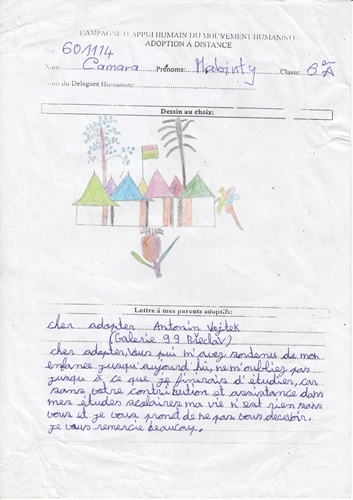 CAMPAGNE D'APPUI HUMAIN DU MOUVEMENT HUMANISTE
ADOPTION À DISTANCE
N°: 601114
Nom Camara Prénoms: Mabinty Classe: 6ème A
Nom du Délégué Humaniste:
Dessin au choix:
Lettre à mes parents adoptifs:
cher adopter Antonin Vojtek
(Galerie 99 Břeclav)
cher adopter, Vous qui m'avez soutenu de mon
enfance jusqu'aujourd'hui, ne m'oubliez pas
jusqu'à ce que je finirais d'étudier, car
sans votre contribution et assistance dans
mes études scolaires ma vie n'est rien sans
vous et je vous promet de ne pas vous decevoir.
je vous remercie beaucoup.